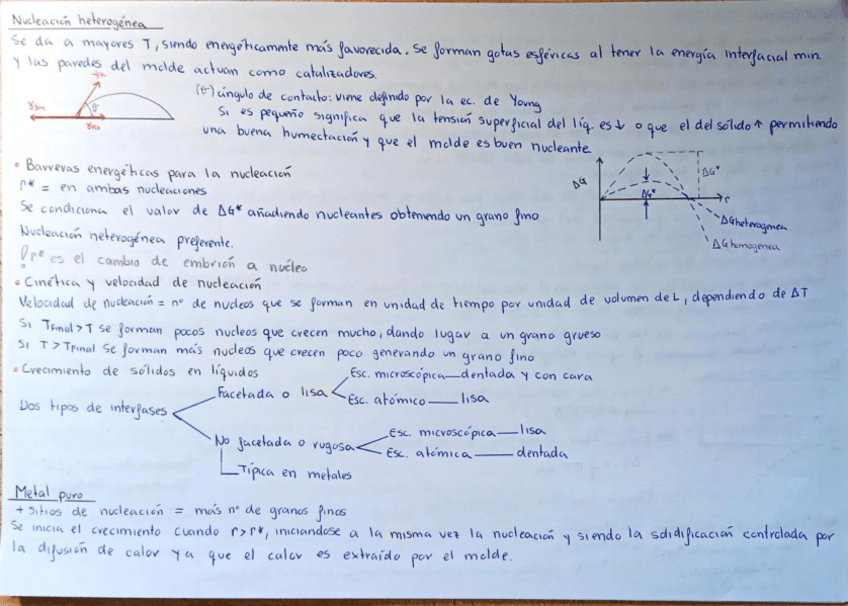 Nucleación heterogénea
Se da a mayores T, siendo energéticamente más favorecida. Se forman gotas esféricas al tener la energía interfacial min.
y las paredes del molde actuan como catalizadores.
(θ) ángulo de contacto: viene definido por la ec. de Young
Si es pequeño significa que la tensión superficial del líq. es ↓ o que el del sólido ↑ permitiendo
una buena humectación y que el molde es buen nucleante.
θ
• Barreras energéticas para la nucleación
r* = en ambas nucleaciones
Se condiciona el valor de ΔG* añadiendo nucleantes obteniendo un grano fino
Nucleación heterogénea preferente.
r* es el cambio de embrión a núcleo
ΔG
ΔG*
ΔG*
r
ΔG heterogenea
ΔG homogenea
• Cinética y velocidad de nucleación
Velocidad de nucleación = nº de nucleos que se forman en unidad de tiempo por unidad de volumen de L, dependiendo de ΔT
Si TFinal > T se forman pocos nucleos que crecen mucho, dando lugar a un grano grueso
Si T > TFinal se forman más nucleos que crecen poco generando un grano fino
• Crecimiento de sólidos en líquidos
Dos tipos de interfases
Facetada o lisa
Esc. microscópica — dentada y con cara
Esc. atómico — lisa
No facetada o rugosa
Esc. microscópica — lisa
Esc. atómica — dentada
Típica en metales
Metal puro
+ sitios de nucleación = más nº de granos finos
Se inicia el crecimiento cuando r > r*, iniciandose a la misma vez la nucleación y siendo la solidificación controlada por
la difusión de calor ya que el calor es extraído por el molde.